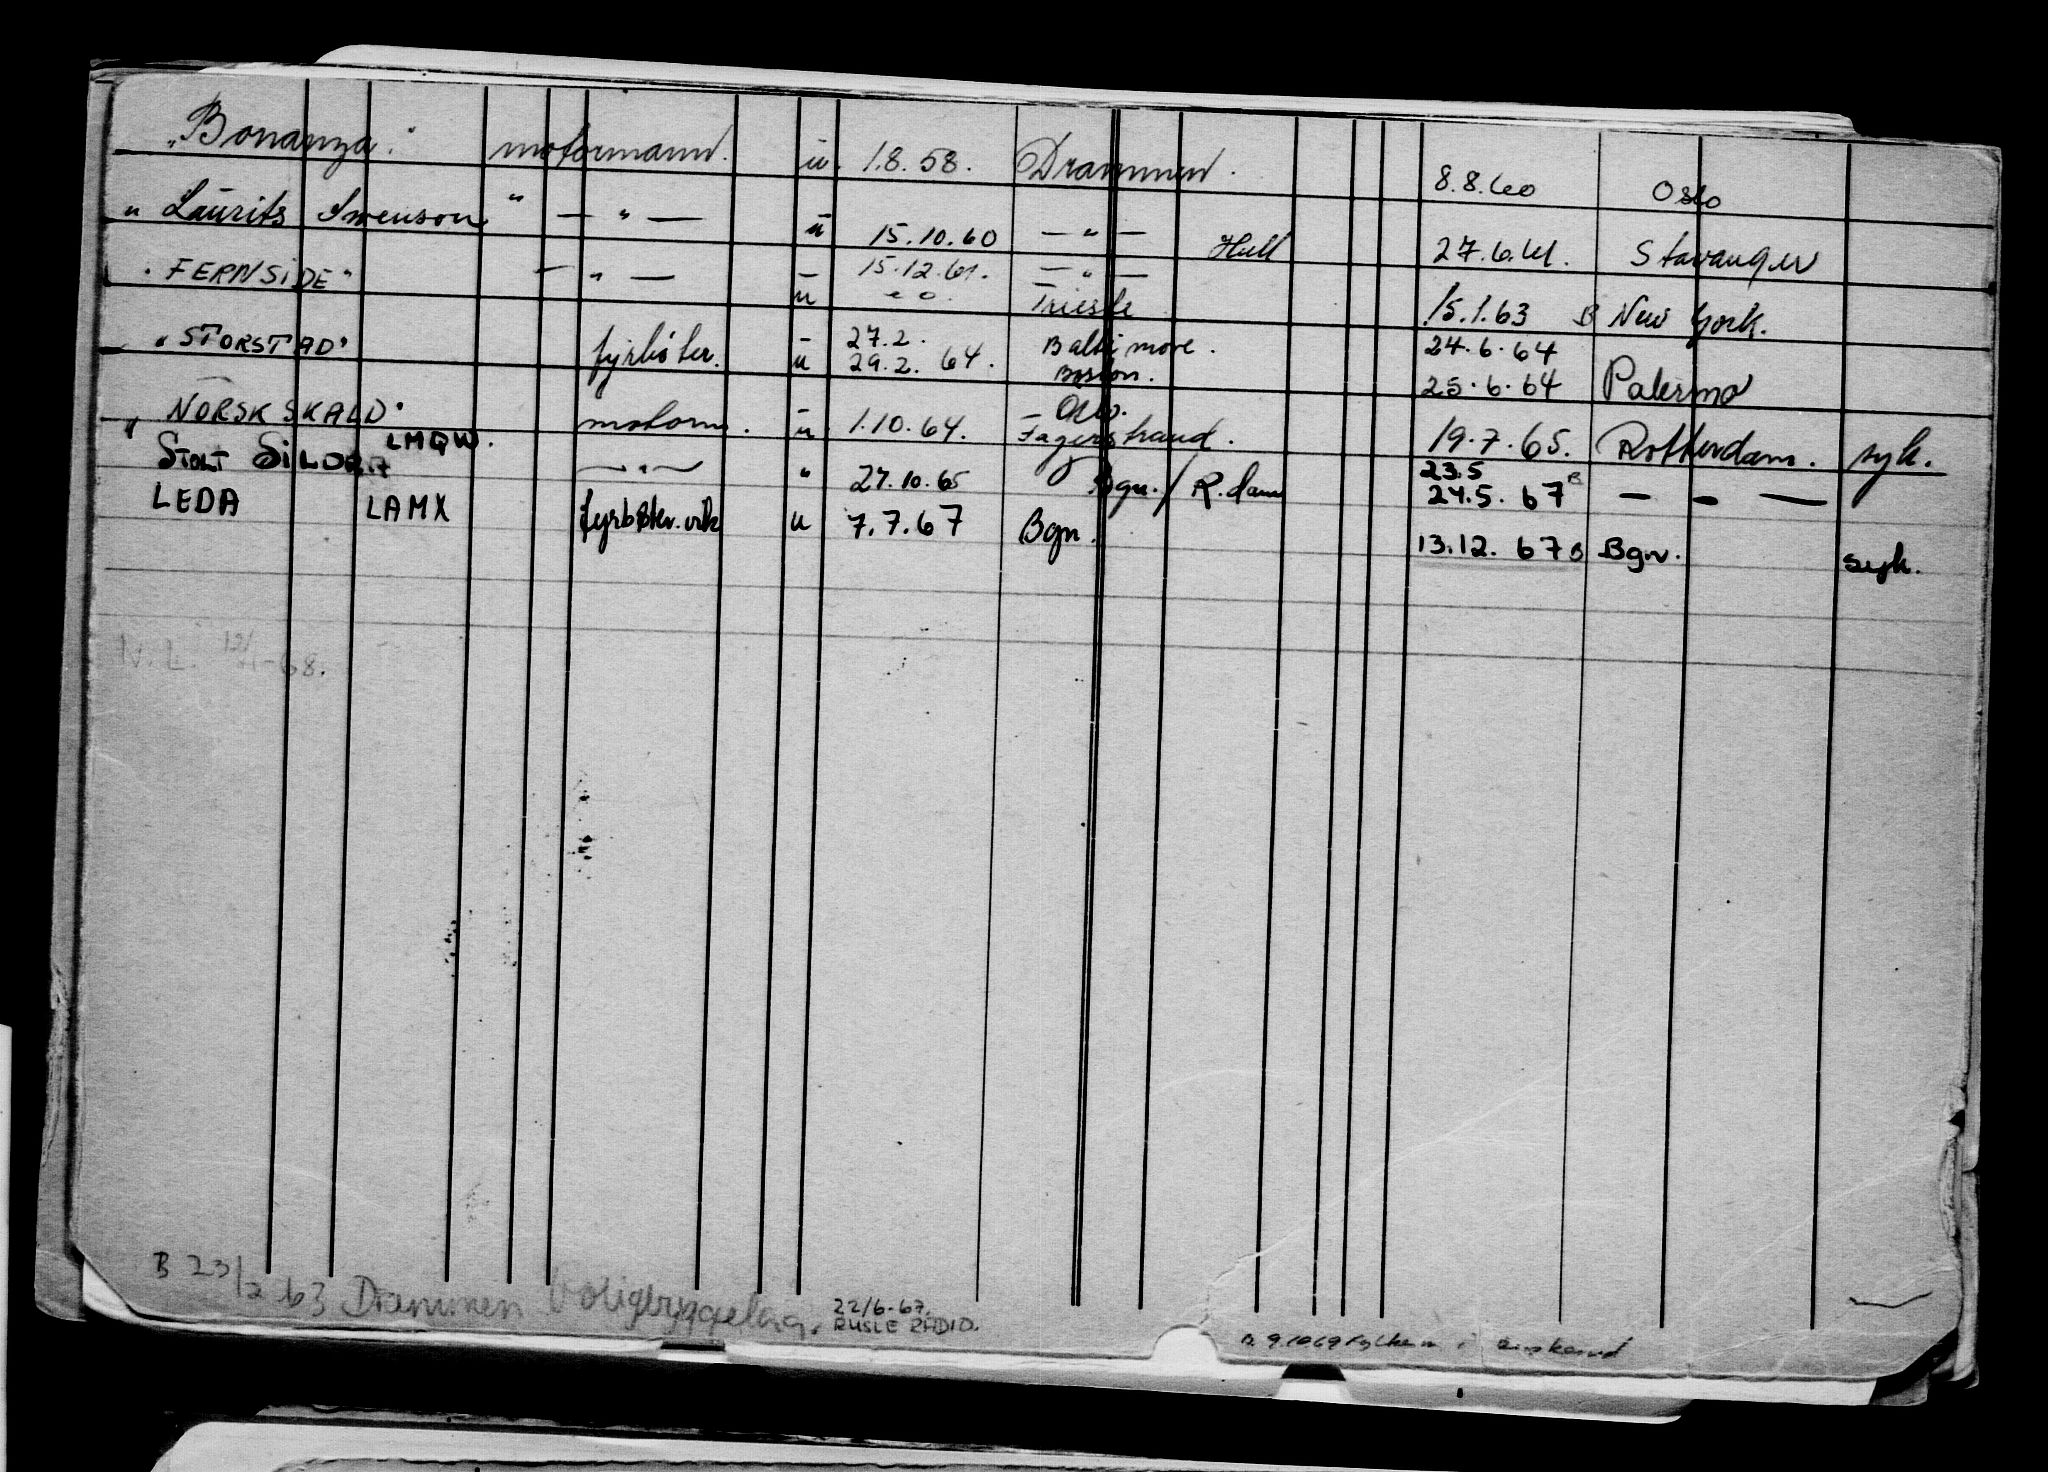 „Bonanza." motormann. u. 1.8.58. Drammen. 8.8.60 Oslo
" Laurits Swenson " — " — u 15.10.60 — " — Hull 27.6.61. Stavanger
" FERNSIDE" — " — u 15.12.61. — " — Trieste 15.1.63 B New York.
" STORSTAD" fyrbøter. u 27.2. 29.2. 64. Baltimore. Boston. 24.6.64 25.6.64 Palermo
" NORSK SKALD" motorm. u 1.10.64. Oslo. Fagerstrand. 19.7.65. Rotterdam. syk.
STOLT LMQW. — " — " 27.10.65 Bgn./R.dam 23.5 24.5.67 B — - —
LEDA LAMX fyrbøter. vik u 7.7.67 Bgn. 13.12.67 B Bgn. syk.
N.L. 12/1-68.
B 23/2 63 Drammen Boligbyggelag.
22/6-67.
RUSLE RADIO.
B. 9.1069 Fylkem i Buskerud